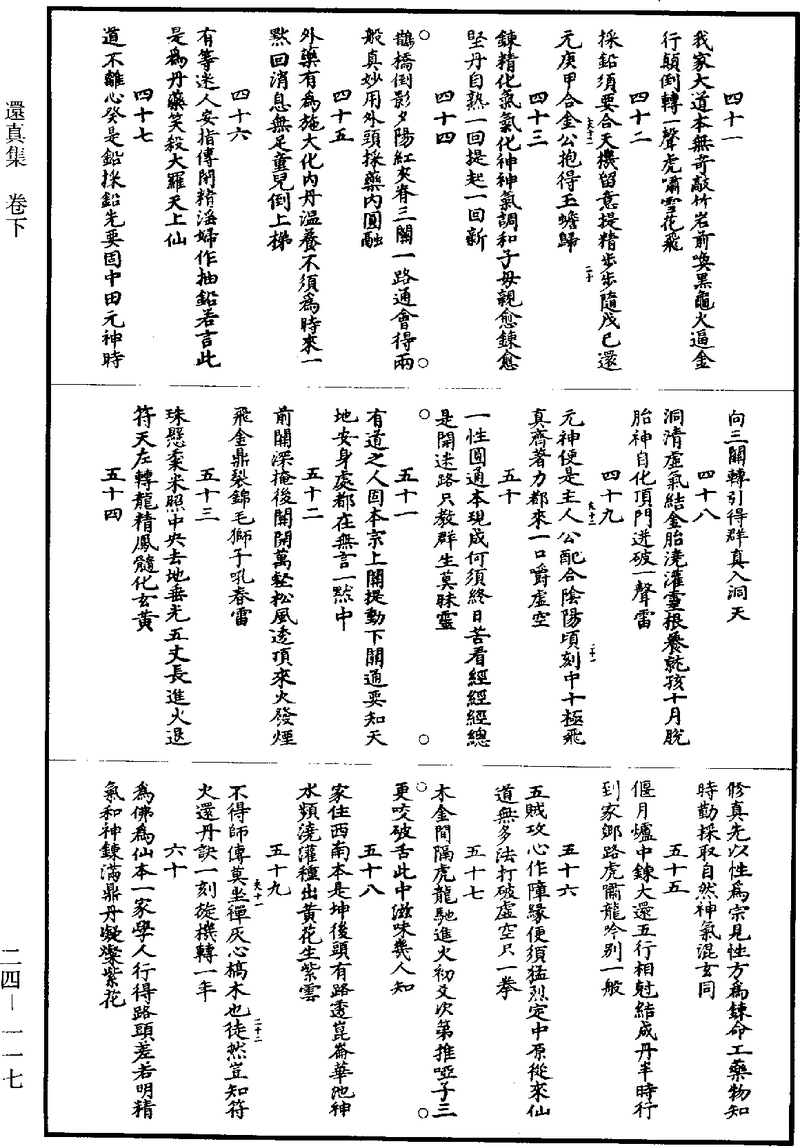 還真集　卷下
四十一
我家大道本無奇敲竹岩前喚黑龜火逼金
行顛倒轉一聲虎嘯雪花飛
四十二
採鉛須要合天機留意提精步步隨戊己還
元庚甲合金公抱得玉蟾歸
四十三
鍊精化氣氣化神神氣調和子母親愈鍊愈
堅丹自熟一回提起一回新
四十四
鵲橋倒影夕陽紅夾脊三關一路通會得兩
般真妙用外頭採藥內圓融
四十五
外藥有為施大化內丹溫養不須為時來一
㸃回消息無足童兒倒上梯
四十六
有等迷人妄指傳閉精淫婦作抽鉛若言此
是為丹藥笑殺大羅天上仙
四十七
道不離心癸是鉛採鉛先要固中田元神時
向三關轉引得群真入洞天
四十八
洞清虛氣結金胎澆灌靈根養就孩十月脫
胎神自化頂門迸破一聲雷
四十九
元神便是主人公配合陰陽頃刻中十極飛
真齊著力都來一口嚼虛空
五十
一性圓通本現成何須終日苦看經經經總
是開迷路只教群生莫昧靈
五十一
有道之人固本宗上關提動下關通要知天
地安身處都在無言一默中
五十二
前關深掩後關開萬壑松風透頂來火發煙
飛金鼎裂錦毛獅子吼春雷
五十三
珠懸黍米照中央去地垂光五丈長進火退
符天左轉龍精鳳髓化玄黃
五十四
修真先以性為宗見性方為鍊命工藥物知
時勤採取自然神氣混玄同
五十五
偃月爐中鍊大還五行相尅結成丹半時行
到家鄉路虎嘯龍吟別一般
五十六
五賊攻心作障緣便須猛烈定中原從來仙
道無多法打破虛空只一拳
五十七
木金間隔虎龍馳進火初爻次第推啞子三
更咬破舌此中滋味幾人知
五十八
家住西南本是坤後頭有路透崑崙華池神
水頻澆灌種出黃花生紫雲
五十九
不得師傳莫坐禪灰心槁木也徒然豈知符
火還丹訣一刻從機轉一年
六十
為佛為仙本一家學人行得路頭差若明精
氣和神鍊滿鼎丹凝燦紫花
二四—一一七